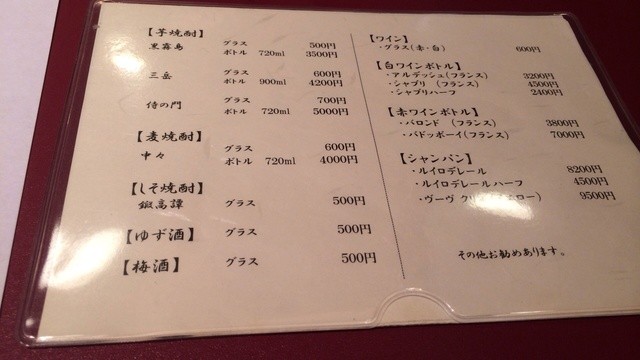 【芋焼酎】
黒霧島 グラス 500円
ボトル 720ml 3500円
三岳 グラス 600円
ボトル 900ml 4200円
侍の門 グラス 700円
ボトル 720ml 5000円
【麦焼酎】
中々 グラス 600円
ボトル 720ml 4000円
【しそ焼酎】
鍛高譚 グラス 500円
【ゆず酒】 グラス 500円
【梅酒】 グラス 500円
【ワイン】
・グラス(赤・白) 600円
【白ワインボトル】
・アルデッシュ(フランス) 3200円
・シャブリ (フランス) 4500円
・シャブリハーフ 2400円
【赤ワインボトル】
・バロンド (フランス) 3800円
・バドッボーイ(フランス) 7000円
【シャンパン】
・ルイロデレール 8200円
・ルイロデレールハーフ 4500円
・ヴーヴ クリ ロー) 9500円
その他お勧めあります。